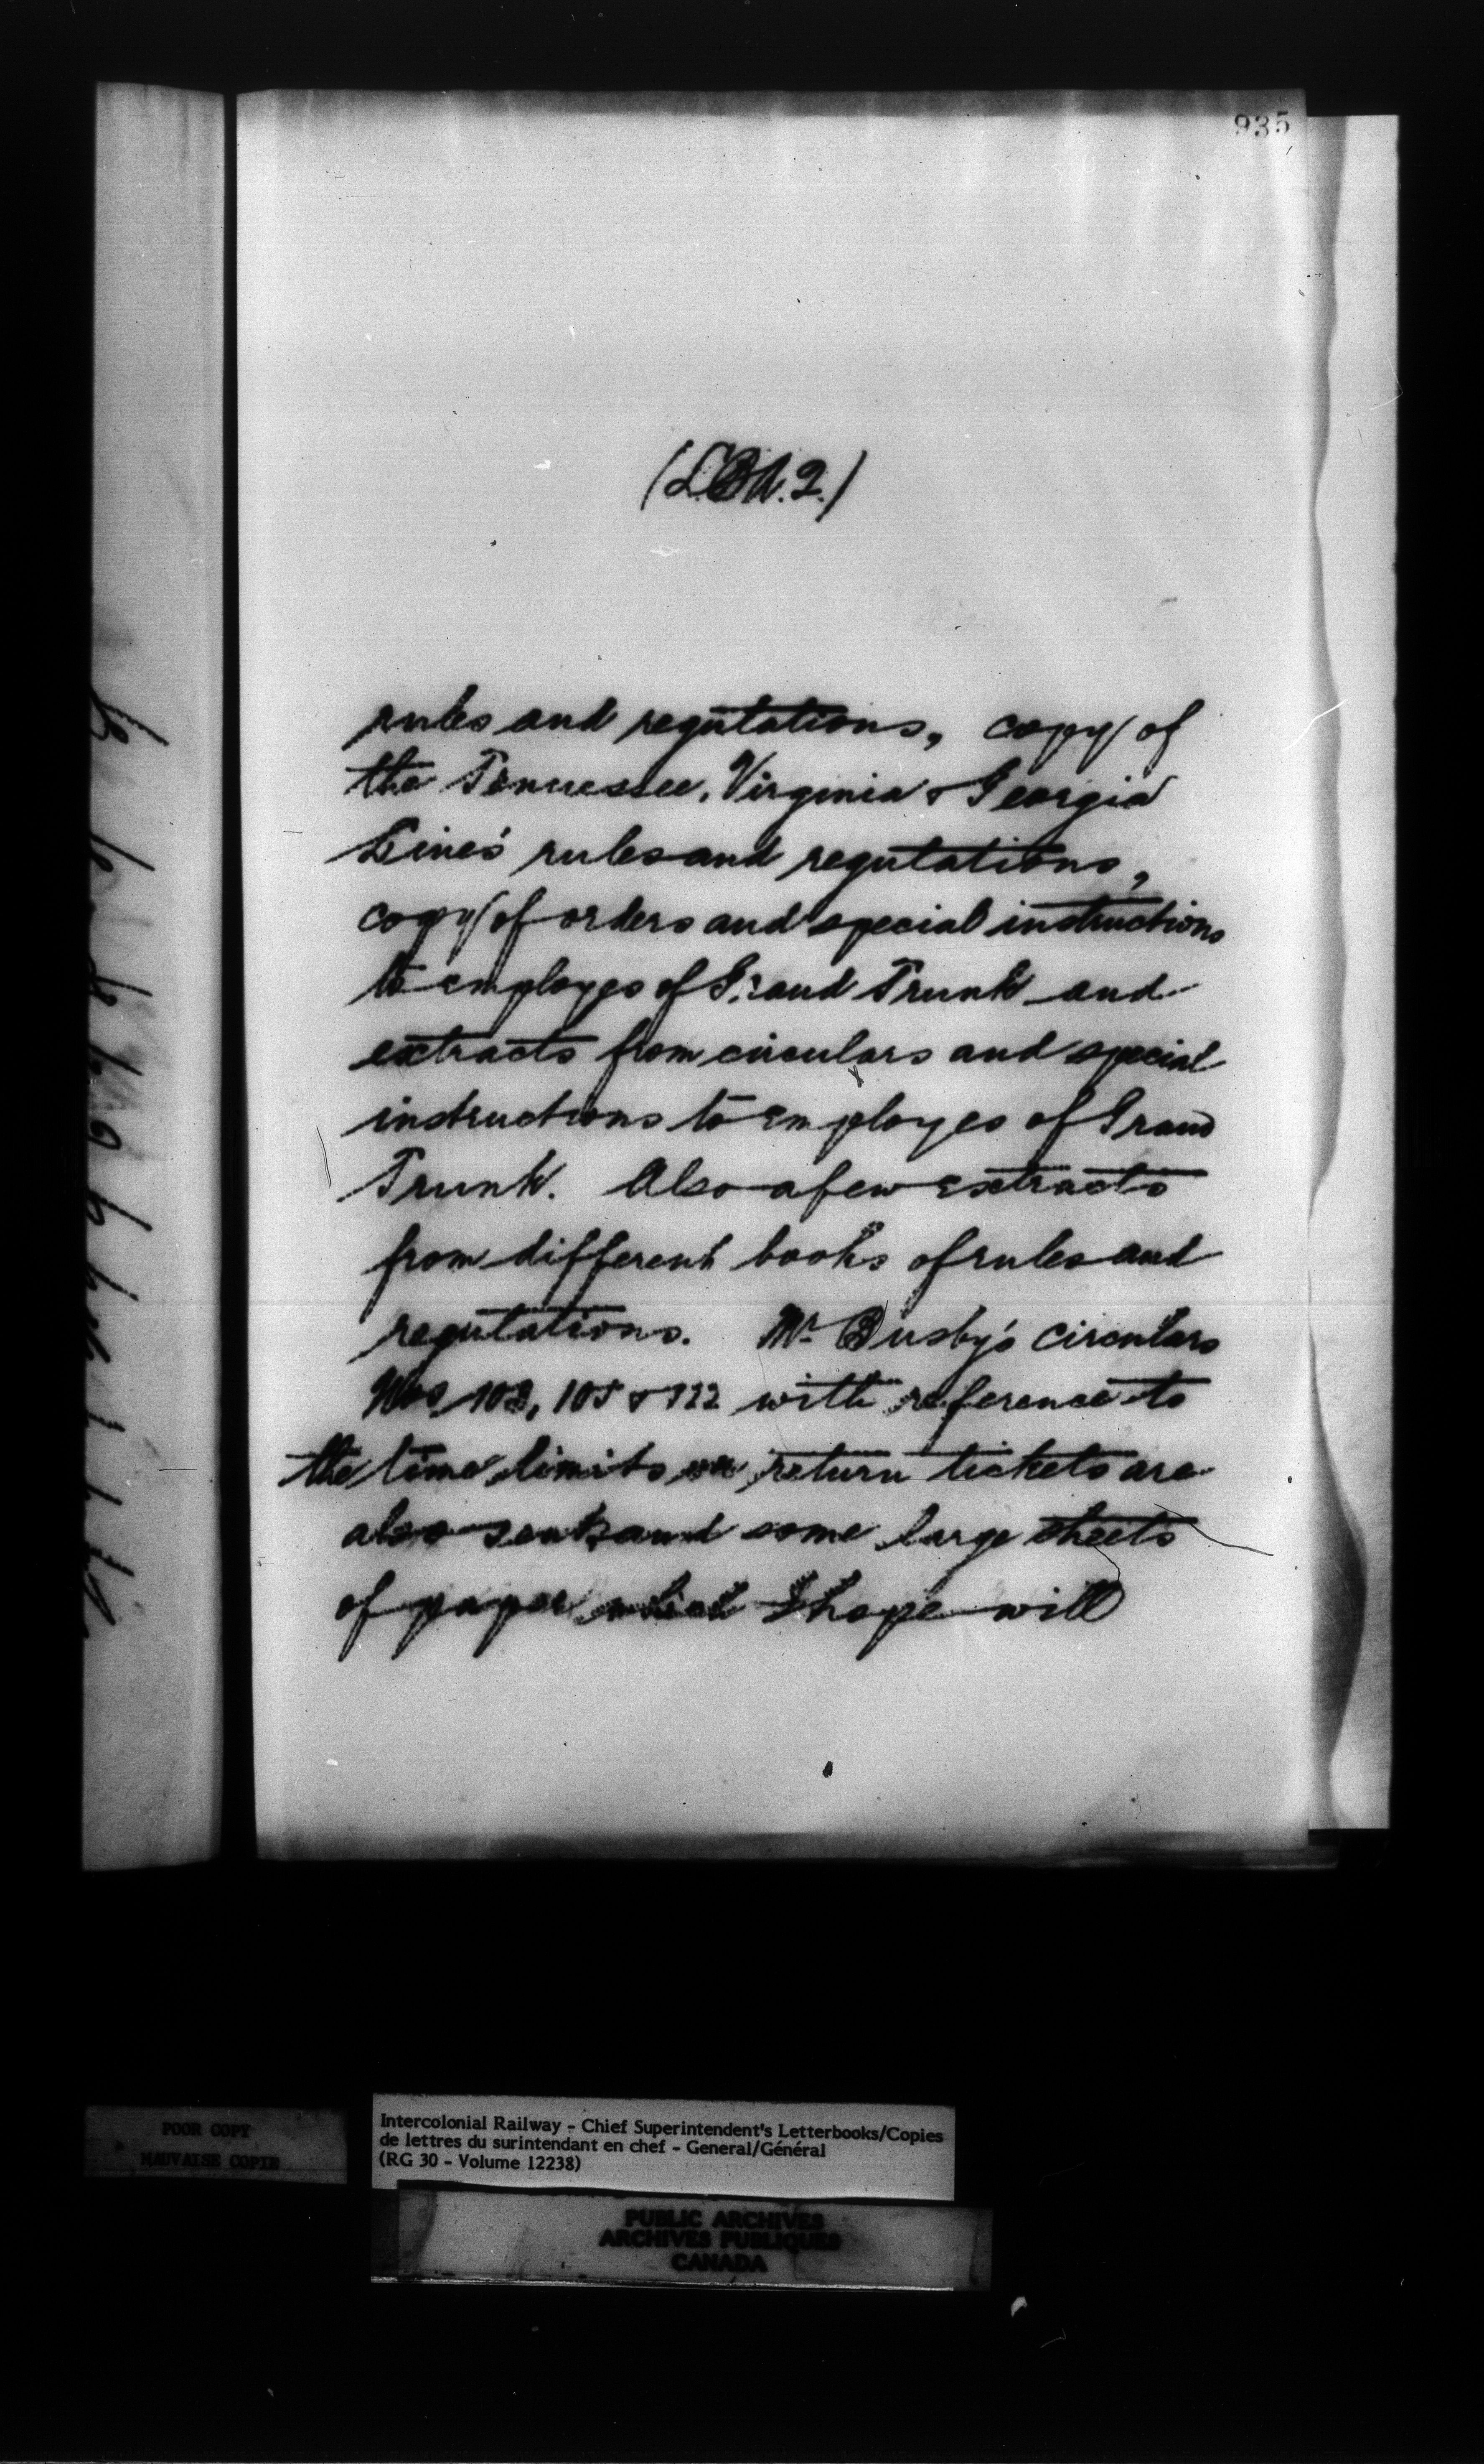 935
(L.B.A. 2.)
rules and regulations, copy of
the Tennessee, Virginia & Georgia
Line's rules and regulations,
copy of orders and special instructions
to employes of Grand Trunk and
extracts from circulars and special
instructions to employes of Grand
Trunk. Also a few extracts
from different books of rules and
regulations. Mr Busby's circulars
Nos 103, 105 & 122 with reference to
the time limits on return tickets are
also sent and some large sheets
of paper which I hope will
POOR COPY
MAUVAISE COPIE
Intercolonial Railway - Chief Superintendent's Letterbooks/Copies
de lettres du surintendant en chef - General/Général
(RG 30 - Volume 12238)
PUBLIC ARCHIVES
ARCHIVES PUBLIQUES
CANADA